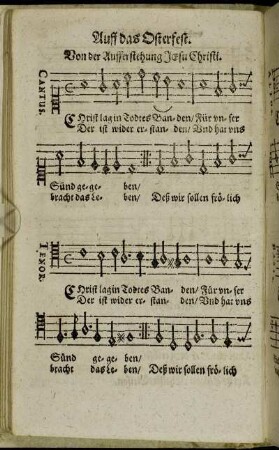 Auff das Osterfest.
Von der Aufferstehung Jesu Christi.
CANTUS.
CHrist lag in Todtes Ban-den/ Für vn-ser
Der ist wider er-stan-den/ Vnd hat vns
Sünd ge-ge-ben/
bracht das Le-ben/ Deß wir sollen frö-lich
TENOR.
CHrist lag in Todtes Ban-den/ Für vn-ser
Der ist wider er-stan-den/ Vnd hat vns
Sünd ge-ge-ben/
bracht das Le-ben/ Deß wir sollen frö-lich